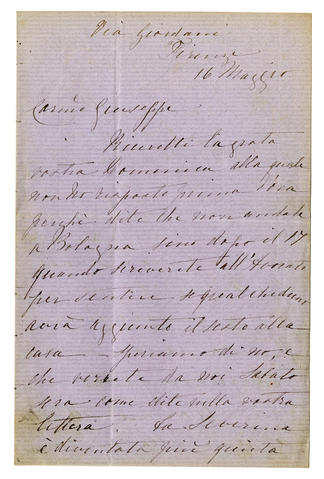 Via Giordani
Firenze
16 Maggio
Carmo Giuseppe
Ricevetti la grata
vostra Domenica alla quale
non ho risposto prima d'ora
perché dite che non andate
a Bologna sino dopo il 17
quando scriverete all'Avocato
per sentire se qualcheduno
avrà aggiunto il sesto alla
casa – speriamo di no, e
che verrete da noi Sabato
sera come dite nella vostra
lettera. La Severina
è diventata più quieta